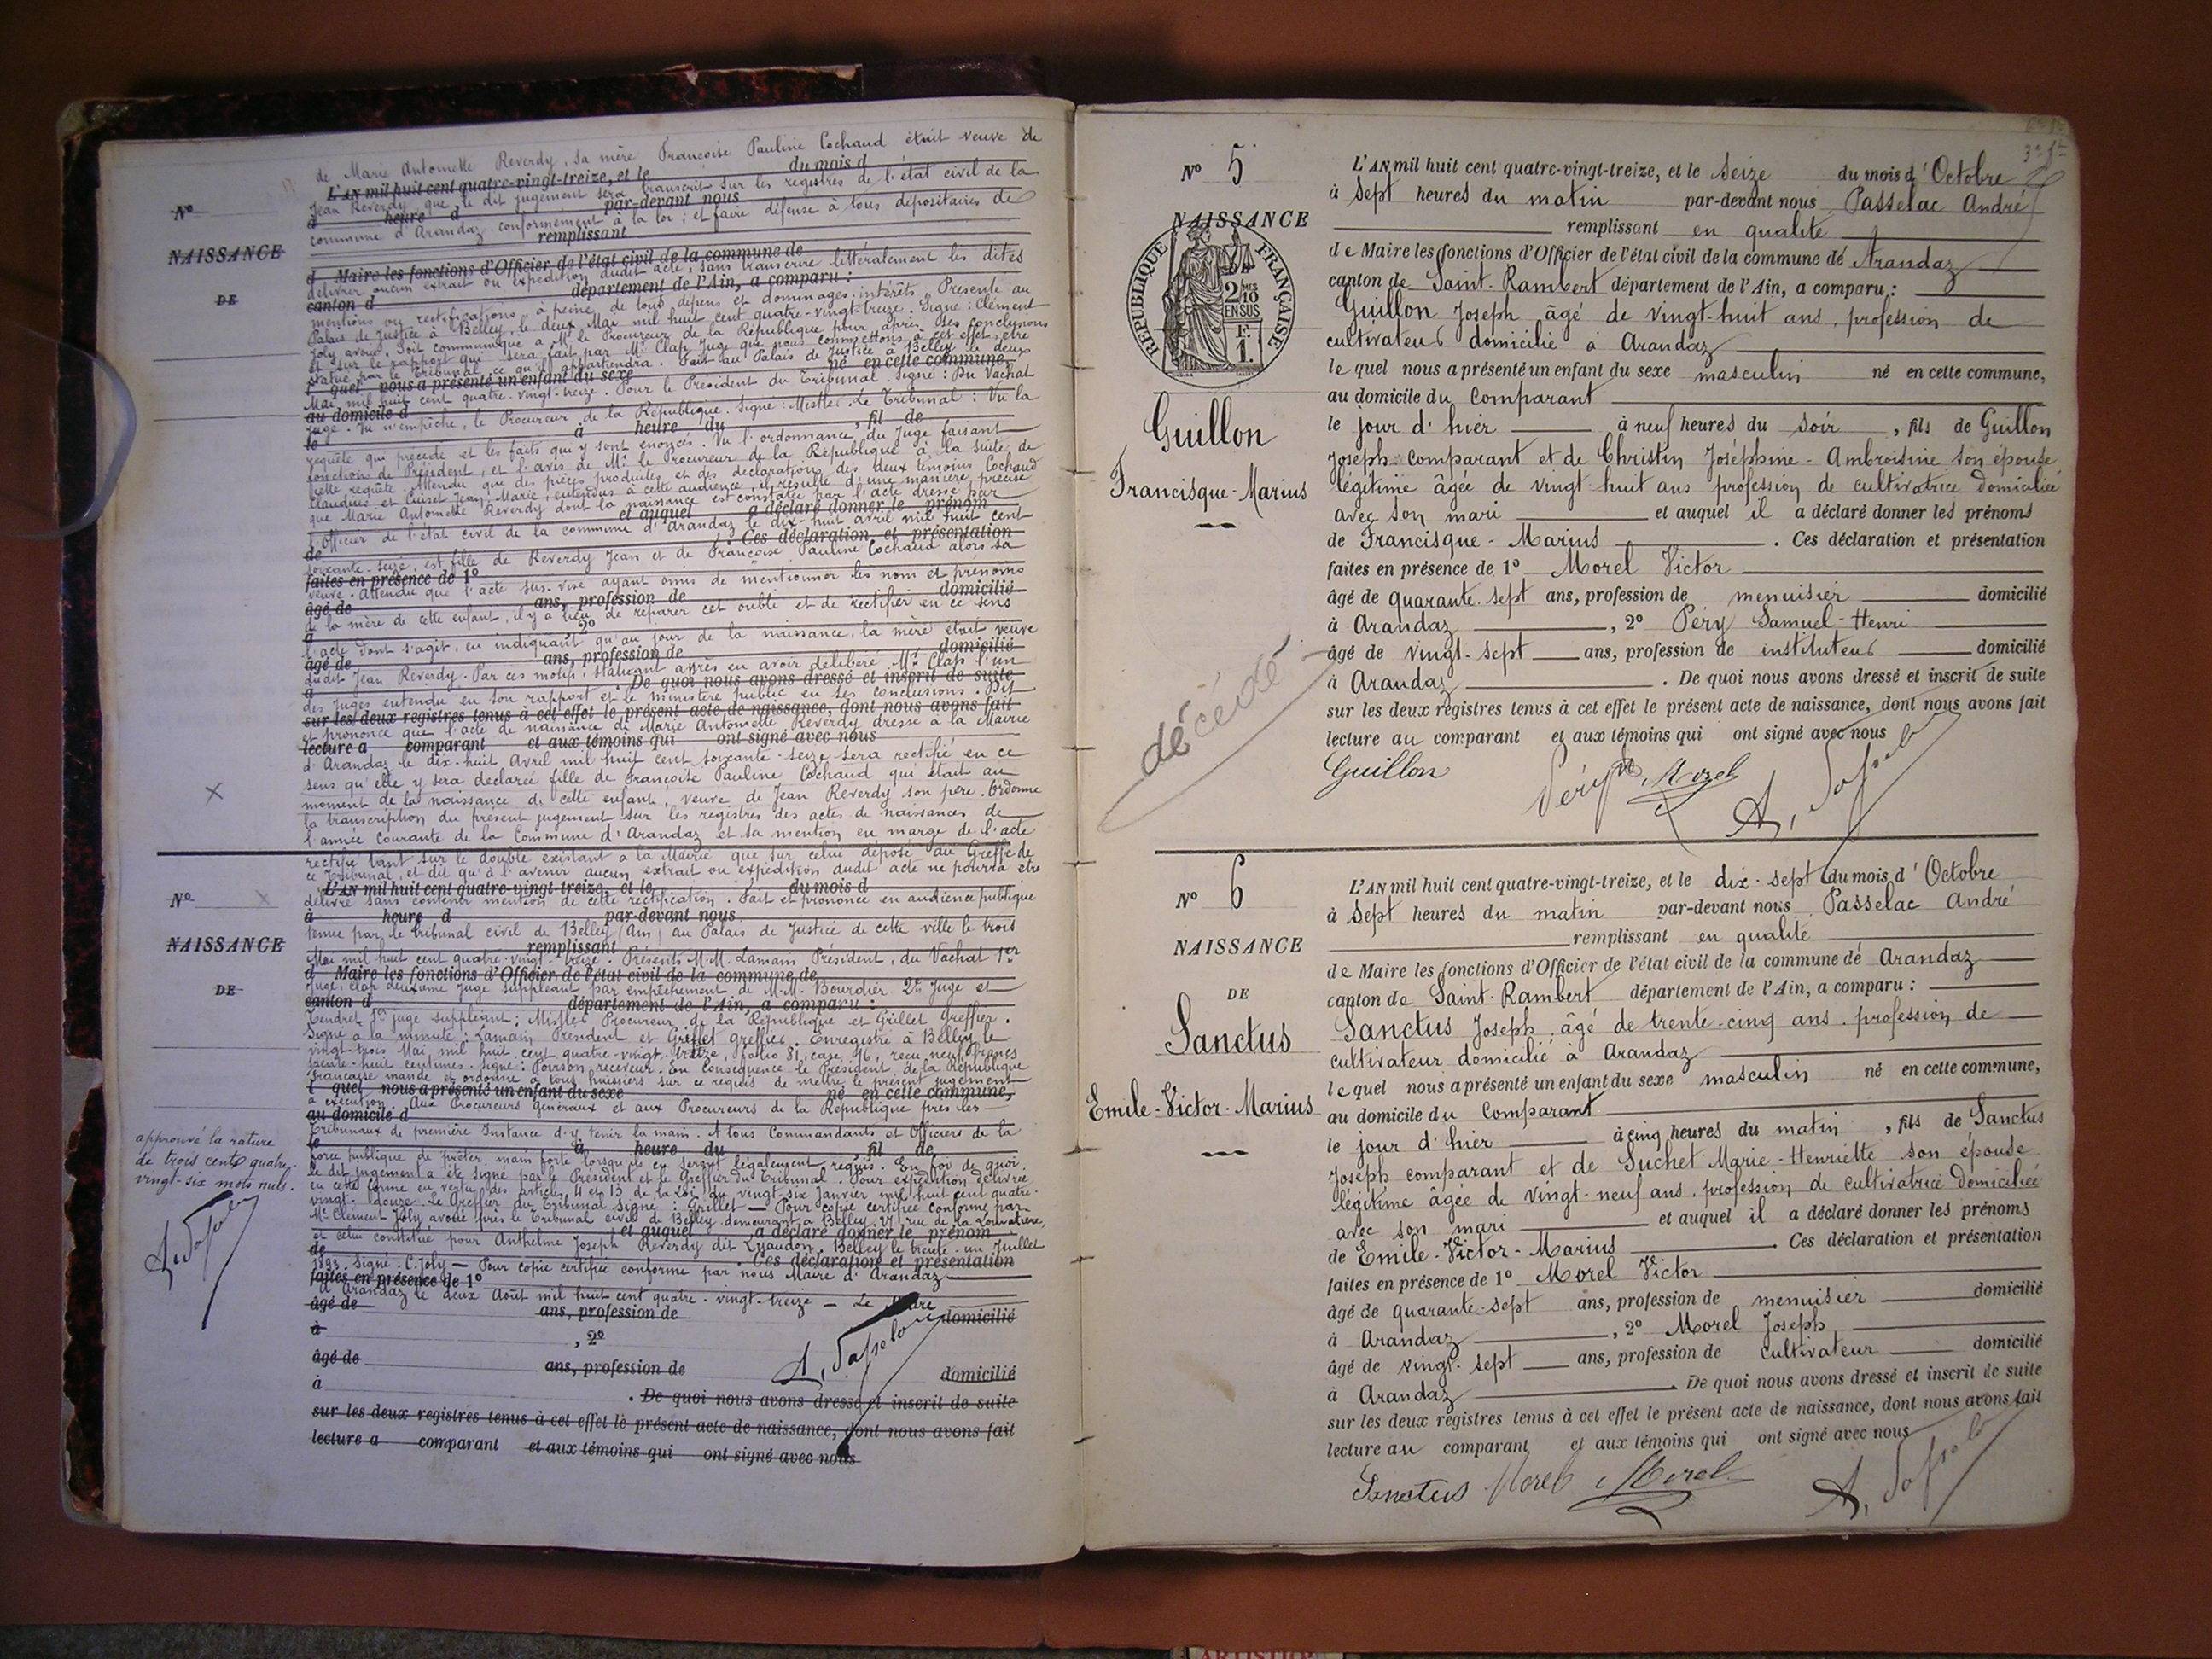 de Marie Antoinette Reverdy, sa mère Françoise Pauline Cochaud était veuve de
L'AN mil huit cent quatre-vingt-treize, et le du mois d
Jean Reverdy, que le dit jugement sera transcrit sur les registres de l'état civil de la
N°
à heure d par-devant nous
commune d'Arandaz conformément à la loi ; et faire défense à tous dépositaires de
remplissant
NAISSANCE
d Maire les fonctions d'Officier de l'état civil de la commune de
délivrer aucun extrait ou expédition dudit acte, sans transcrire littéralement les dites
DE
canton d département de l'Ain, a comparu :
mentions ou rectifications à peine de tous dépens et dommages-intérêts. Présenté au
Palais de Justice à Belley, le deux Mai mil huit cent quatre-vingt-treize. Signé : Clément
Joly avoué. Soit communiqué à Mr le Procureur de la République pour après ses conclusions
et sur le rapport qui sera fait par Mr Clap Juge que nous commettons à cet effet, être
statué par le Tribunal ce qu'il appartiendra. Fait au Palais de Justice à Belley le deux
l quel nous a présenté un enfant du sexe né en cette commune,
Mai mil huit cent quatre-vingt-treize. Pour le Président du Tribunal. Signé : Du Vachat
au domicile d
Juge. Vu n'empêche, le Procureur de la République. Signé : Le Tribunal : Vu la
le à heure du , fil de
requête qui précède et les faits qui y sont énoncés. Vu l'ordonnance du Juge faisant
fonctions de Président, et l'avis de Mr le Procureur de la République à la suite de
cette requête. Attendu que des pièces produites et des déclarations des deux témoins Cochaud
Claudius et Cuiset Jean-Marie, entendus à cette audience, il résulte d'une manière précise
que Marie Antoinette Reverdy dont la naissance est constatée par l'acte dressé par
et auquel a déclaré donner le prénom
l'officier de l'état civil de la commune d'Arandaz le dix-huit avril mil huit cent
de . Ces déclaration et présentation
soixante-seize, est fille de Reverdy Jean et de Françoise Pauline Cochaud alors sa
faites en présence de 1°
veuve. Attendu que l'acte sus-visé ayant omis de mentionner les nom et prénoms
âgé de ans, profession de domicilié
de la mère de cette enfant, il y a lieu de réparer cet oubli et de rectifier en ce sens
à , 2°
l'acte dont s'agit, en indiquant qu'au jour de la naissance, la mère était veuve
âgé de ans, profession de domicilié
dudit Jean Reverdy. Par ces motifs, statuant après en avoir délibéré. Mr Clap l'un
à . De quoi nous avons dressé et inscrit de suite
des juges entendu en son rapport et le ministère public en ses conclusions. Dit
sur les deux registres tenus à cet effet le présent acte de naissance, dont nous avons fait
et prononcé que l'acte de naissance de Marie Antoinette Reverdy dressé à la Mairie
lecture a comparant et aux témoins qui ont signé avec nous
d'Arandaz le dix-huit Avril mil huit cent soixante-seize sera rectifié en ce
sens qu'elle y sera déclarée fille de Françoise Pauline Cochaud qui était au
moment de la naissance de cette enfant, veuve de Jean Reverdy son père. Ordonne
la transcription du présent jugement sur les registres des actes de naissances de
l'année courante de la Commune d'Arandaz et sa mention en marge de l'acte
rectifié tant sur le double existant à la Mairie que sur celui déposé au Greffe de
ce Tribunal, et dit qu'à l'avenir aucun extrait ou expédition dudit acte ne pourra être
L'AN mil huit cent quatre-vingt-treize, et le du mois d
N°
délivré sans contenir mention de cette rectification. Fait et prononcé en audience publique
à heure d par-devant nous
tenue par le tribunal civil de Belley (Ain) au Palais de Justice de cette ville le trois
NAISSANCE
remplissant
Mai mil huit cent quatre-vingt-treize. Présents M.M. Lamain Président, du Vachat 1er
d Maire les fonctions d'Officier de l'état civil de la commune de
Juge, Clap deuxième Juge suppléant par empêchement de M.M. Bourdier 2e Juge et
DE
canton d département de l'Ain, a comparu :
Tendret 1er juge suppléant ; Procureur de la République et Grillet Greffier.
Signé à la minute : Lamain, Président et Grillet greffier. Enregistré à Belley le
vingt-trois Mai mil huit cent quatre-vingt-treize, folio 81, case 16, reçu neuf francs
trente-huit centimes. Signé : Poisson receveur. En conséquence le Président de la République
Française mande et ordonne à tous huissiers sur ce requis de mettre le présent jugement
l quel nous a présenté un enfant du sexe né en cette commune,
à exécution. Aux Procureurs Généraux et aux Procureurs de la République près les
au domicile d
Tribunaux de première Instance d'y tenir la main. A tous Commandants et Officiers de la
le à heure du , fil de
force publique de prêter main forte lorsqu'ils en seront légalement requis. En foi de quoi
le dit jugement a été signé par le Président et le Greffier du Tribunal. Pour expédition délivrée
en cette forme en vertu des articles 4 et 13 de la Loi du vingt-six Janvier mil huit cent quatre-
vingt-douze. Le Greffier du Tribunal Signé : Grillet — Pour copie certifiée conforme par
Me Clément Joly avoué près le Tribunal civil de Belley demeurant à Belley, 27, rue de la
et auquel a déclaré donner le prénom
et celui constitué pour Anthelme Joseph Reverdy dit Belley le trente-un Juillet
de . Ces déclaration et présentation
1893. Signé : C. Joly — Pour copie certifiée conforme par nous Maire d'Arandaz
faites en présence de 1°
à Arandaz le deux Août mil huit cent quatre-vingt-treize — Le Maire
âgé de ans, profession de domicilié
à , 2°
âgé de ans, profession de domicilié
à . De quoi nous avons dressé et inscrit de suite
sur les deux registres tenus à cet effet le présent acte de naissance, dont nous avons fait
lecture a comparant et aux témoins qui ont signé avec nous
approuvé la rature
de trois cents quatre-
vingt-six mots nuls.
N° 5
NAISSANCE
DE
RÉPUBLIQUE FRANÇAISE
2/10 EN SUS
1 F.
Guillon
Francisque-Marius
décédé
L'AN mil huit cent quatre-vingt-treize, et le seize du mois d'Octobre
à sept heures du matin par-devant nous Passelac André
remplissant en qualité
de Maire les fonctions d'Officier de l'état civil de la commune de Arandaz
canton de Saint-Rambert département de l'Ain, a comparu :
Guillon Joseph âgé de vingt-huit ans, profession de
cultivateur domicilié à Arandaz
lequel nous a présenté un enfant du sexe masculin né en cette commune,
au domicile du Comparant
le jour d'hier à neuf heures du soir, fils de Guillon
Joseph comparant et de Christin Joséphine-Ambroisine son épouse
légitime âgée de vingt huit ans profession de cultivatrice domiciliée
avec son mari et auquel il a déclaré donner les prénoms
de Francisque-Marius. Ces déclaration et présentation
faites en présence de 1° Morel Victor
âgé de quarante-sept ans, profession de menuisier domicilié
à Arandaz, 2° Péry Samuel-Henri
âgé de vingt-sept ans, profession de instituteur domicilié
à Arandaz. De quoi nous avons dressé et inscrit de suite
sur les deux registres tenus à cet effet le présent acte de naissance, dont nous avons fait
lecture au comparant et aux témoins qui ont signé avec nous
Guillon Péry Morel
N° 6
NAISSANCE
DE
Sanctus
Emile-Victor-Marius
L'AN mil huit cent quatre-vingt-treize, et le dix-sept du mois d'Octobre
à sept heures du matin par-devant nous Passelac André
remplissant en qualité
de Maire les fonctions d'Officier de l'état civil de la commune de Arandaz
canton de Saint-Rambert département de l'Ain, a comparu :
Sanctus Joseph, âgé de trente-cinq ans, profession de
cultivateur domicilié à Arandaz
lequel nous a présenté un enfant du sexe masculin né en cette commune,
au domicile du Comparant
le jour d'hier à cinq heures du matin, fils de Sanctus
Joseph comparant et de Suchet Marie-Henriette son épouse
légitime âgée de vingt-neuf ans, profession de cultivatrice domiciliée
avec son mari et auquel il a déclaré donner les prénoms
de Emile-Victor-Marius. Ces déclaration et présentation
faites en présence de 1° Morel Victor
âgé de quarante-sept ans, profession de menuisier domicilié
à Arandaz, 2° Morel Joseph
âgé de vingt-sept ans, profession de cultivateur domicilié
à Arandaz. De quoi nous avons dressé et inscrit de suite
sur les deux registres tenus à cet effet le présent acte de naissance, dont nous avons fait
lecture au comparant et aux témoins qui ont signé avec nous
Sanctus Morel Morel